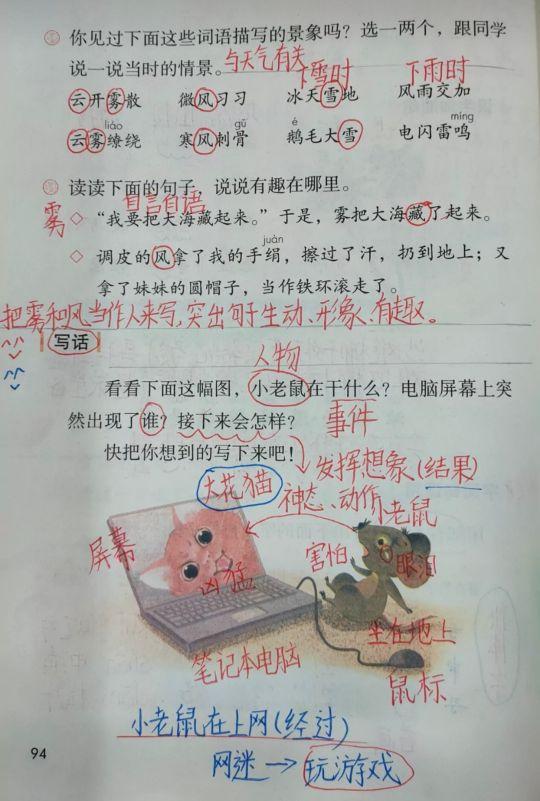 你见过下面这些词语描写的景象吗？选一两个，跟同学
说一说当时的情景。与天气有关 下雪时 下雨时
云开雾散 微风习习 冰天雪地 风雨交加
liáo gǔ é míng
云雾缭绕 寒风刺骨 鹅毛大雪 电闪雷鸣
读读下面的句子，说说有趣在哪里。
雾 自言自语
◇ “我要把大海藏起来。”于是，雾把大海藏了起来。
juàn
◇ 调皮的风拿了我的手绢，擦过了汗，扔到地上；又
拿了妹妹的圆帽子，当作铁环滚走了。
把雾和风当作人来写，突出句子生动、形象、有趣。
写话
人物
看看下面这幅图，小老鼠在干什么？电脑屏幕上突
然出现了谁？接下来会怎样？ 事件
快把你想到的写下来吧！
发挥想象(结果)
大花猫 神态、动作 小老鼠
屏幕 害怕 眼泪
凶猛
坐在地上
笔记本电脑 鼠标
小老鼠在上网(经过)
94
网迷→玩游戏